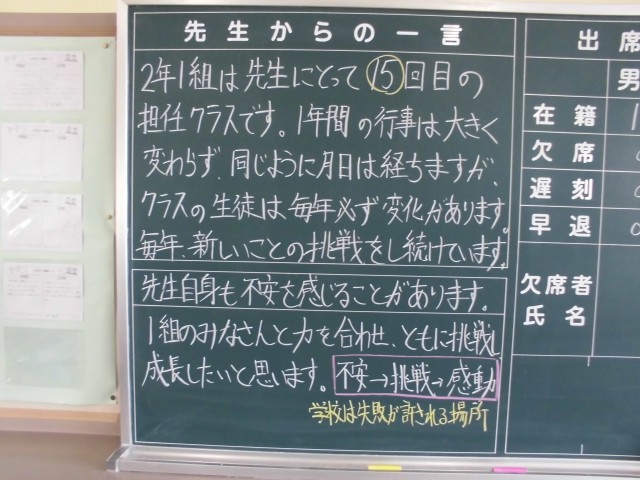 先生からの一言
2年1組は先生にとって⑮回目の
担任クラスです。1年間の行事は大きく
変わらず、同じように月日は経ちますが、
クラスの生徒は毎年必ず変化があります。
毎年、新しいことの挑戦をし続けています。
先生自身も不安を感じることがあります。
1組のみなさんと力を合わせ、ともに挑戦し
成長したいと思います。不安→挑戦→感動
学校は失敗が許される場所
出席
男
在籍
欠席
遅刻
早退
欠席者
氏名